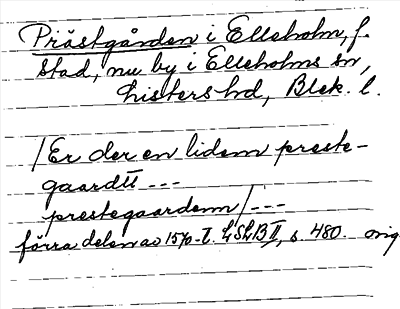 Prästgården i Elleholm, f.
stad, nu by i Elleholms sn,
Listers hd, Blek. l.
/Er der en lidem preste-
gaardtt ---
prestegaardenn/---
förra delen av 15%-t. LSLB II, s. 480. orig